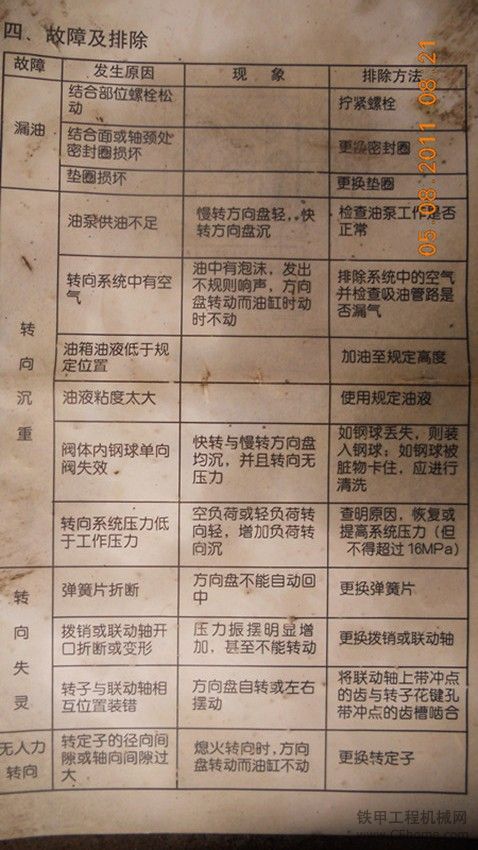 四、故障及排除
故障 发生原因 现 象 排除方法
漏油
结合部位螺栓松
动
拧紧螺栓
结合面或轴颈处
密封圈损坏
更换密封圈
垫圈损坏
更换垫圈
转向沉重
油泵供油不足
慢转方向盘轻，快
转方向盘沉
检查油泵工作是否
正常
转向系统中有空
气
油中有泡沫，发出
不规则响声，方向
盘转动而油缸时动
时不动
排除系统中的空气
并检查吸油管路是
否漏气
油箱油液低于规
定位置
加油至规定高度
油液粘度太大
使用规定油液
阀体内钢球单向
阀失效
快转与慢转方向盘
均沉，并且转向无
压力
如钢球丢失，则装
入钢球；如钢球被
脏物卡住，应进行
清洗
转向系统压力低
于工作压力
空负荷或轻负荷转
向轻，增加负荷转
向沉
查明原因，恢复或
提高系统压力（但
不得超过16MPa）
转向失灵
弹簧片折断
方向盘不能自动回
中
更换弹簧片
拨销或联动轴开
口折断或变形
压力振摆明显增
加，甚至不能转动
更换拨销或联动轴
转子与联动轴相
互位置装错
方向盘自转或左右
摆动
将联动轴上带冲点
的齿与转子花键孔
带冲点的齿槽啮合
无人力
转向
转定子的径向间
隙或轴向间隙过
大
熄火转向时，方向
盘转动而油缸不动
更换转定子
05 08 2011 08 21
铁甲工程机械网
www.CEhome.com